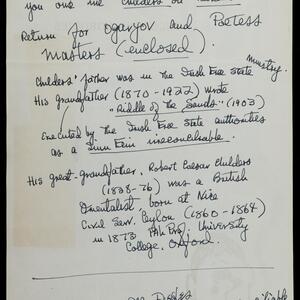 you one
Return for Ogaryov and Poetess
Masters (enclosed).
Childers' father was in the Irish Free State ministry.
His grandfather (1870-1922) wrote
"Riddle of the Sands" (1903)
Executed by the Irish Free State authorities
as a Sinn Fein irreconcilable.
His great-grandfather, Robert Caesar Childers
(1838-76) was a British
Orientalist, born at Nice
Civil Serv. Ceylon (1860-1864)
in 1873 Prof., University
College, Oxford.